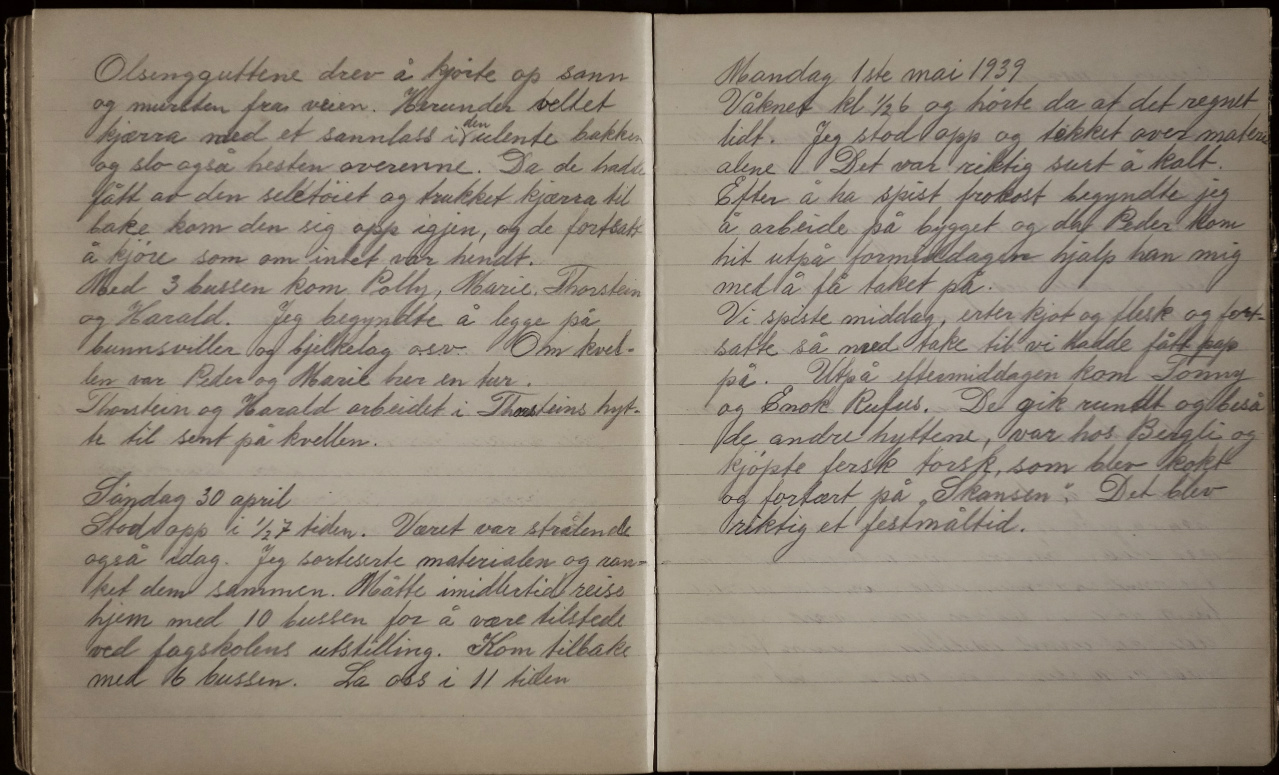 Olsengguttene drev å kjørte op sann
og mursten fra veien. Herunder veltet
kjærra med et sannlass i den ulente bakken
og slo også hesten overenne. Da de hadde
fått av den seletøiet og trukket kjærra til
bake kom den sig opp igjen, og de fortsatt
å kjøre som om intet var hendt.
Med 3 bussen kom Polly, Marie, Thorstein
og Harald. Jeg begyndte å legge på
bunnsviller og bjelkelag osv. Om kvel-
len var Peder og Marie her en tur.
Thorstein og Harald arbeidet i Thorsteins hyt-
te til sent på kvellen.
Søndag 30 april
Stod opp i 1/2 7 tiden. Været var strålende
også idag. Jeg sorteserte materialen og ran-
ket dem sammen. Måtte imidlertid reise
hjem med 10 bussen for å være tilstede
ved fagskolens utstilling. Kom tilbake
med 6 bussen. La oss i 11 tiden
Mandag 1ste mai 1939
Våknet kl 1/2 6 og hørte da at det regnet
lidt. Jeg stod opp og tekket over materi
alene. Det var riktig surt å kalt.
Efter å ha spist frokost begyndte jeg
å arbeide på bygget og da Peder kom
hit utpå formiddagen hjalp han mig
med å få taket på.
Vi spiste middag, erter kjøt og flesk og fort-
satte så med take til vi hadde fått pap
på. Utpå eftermiddagen kom Tonny
og Enok Rufus. De gik rundt og beså
de andre hyttene, var hos Bergli og
kjøpte fersk torsk, som blev kokt
og fortært på „Skansen". Det blev
riktig et festmåltid.